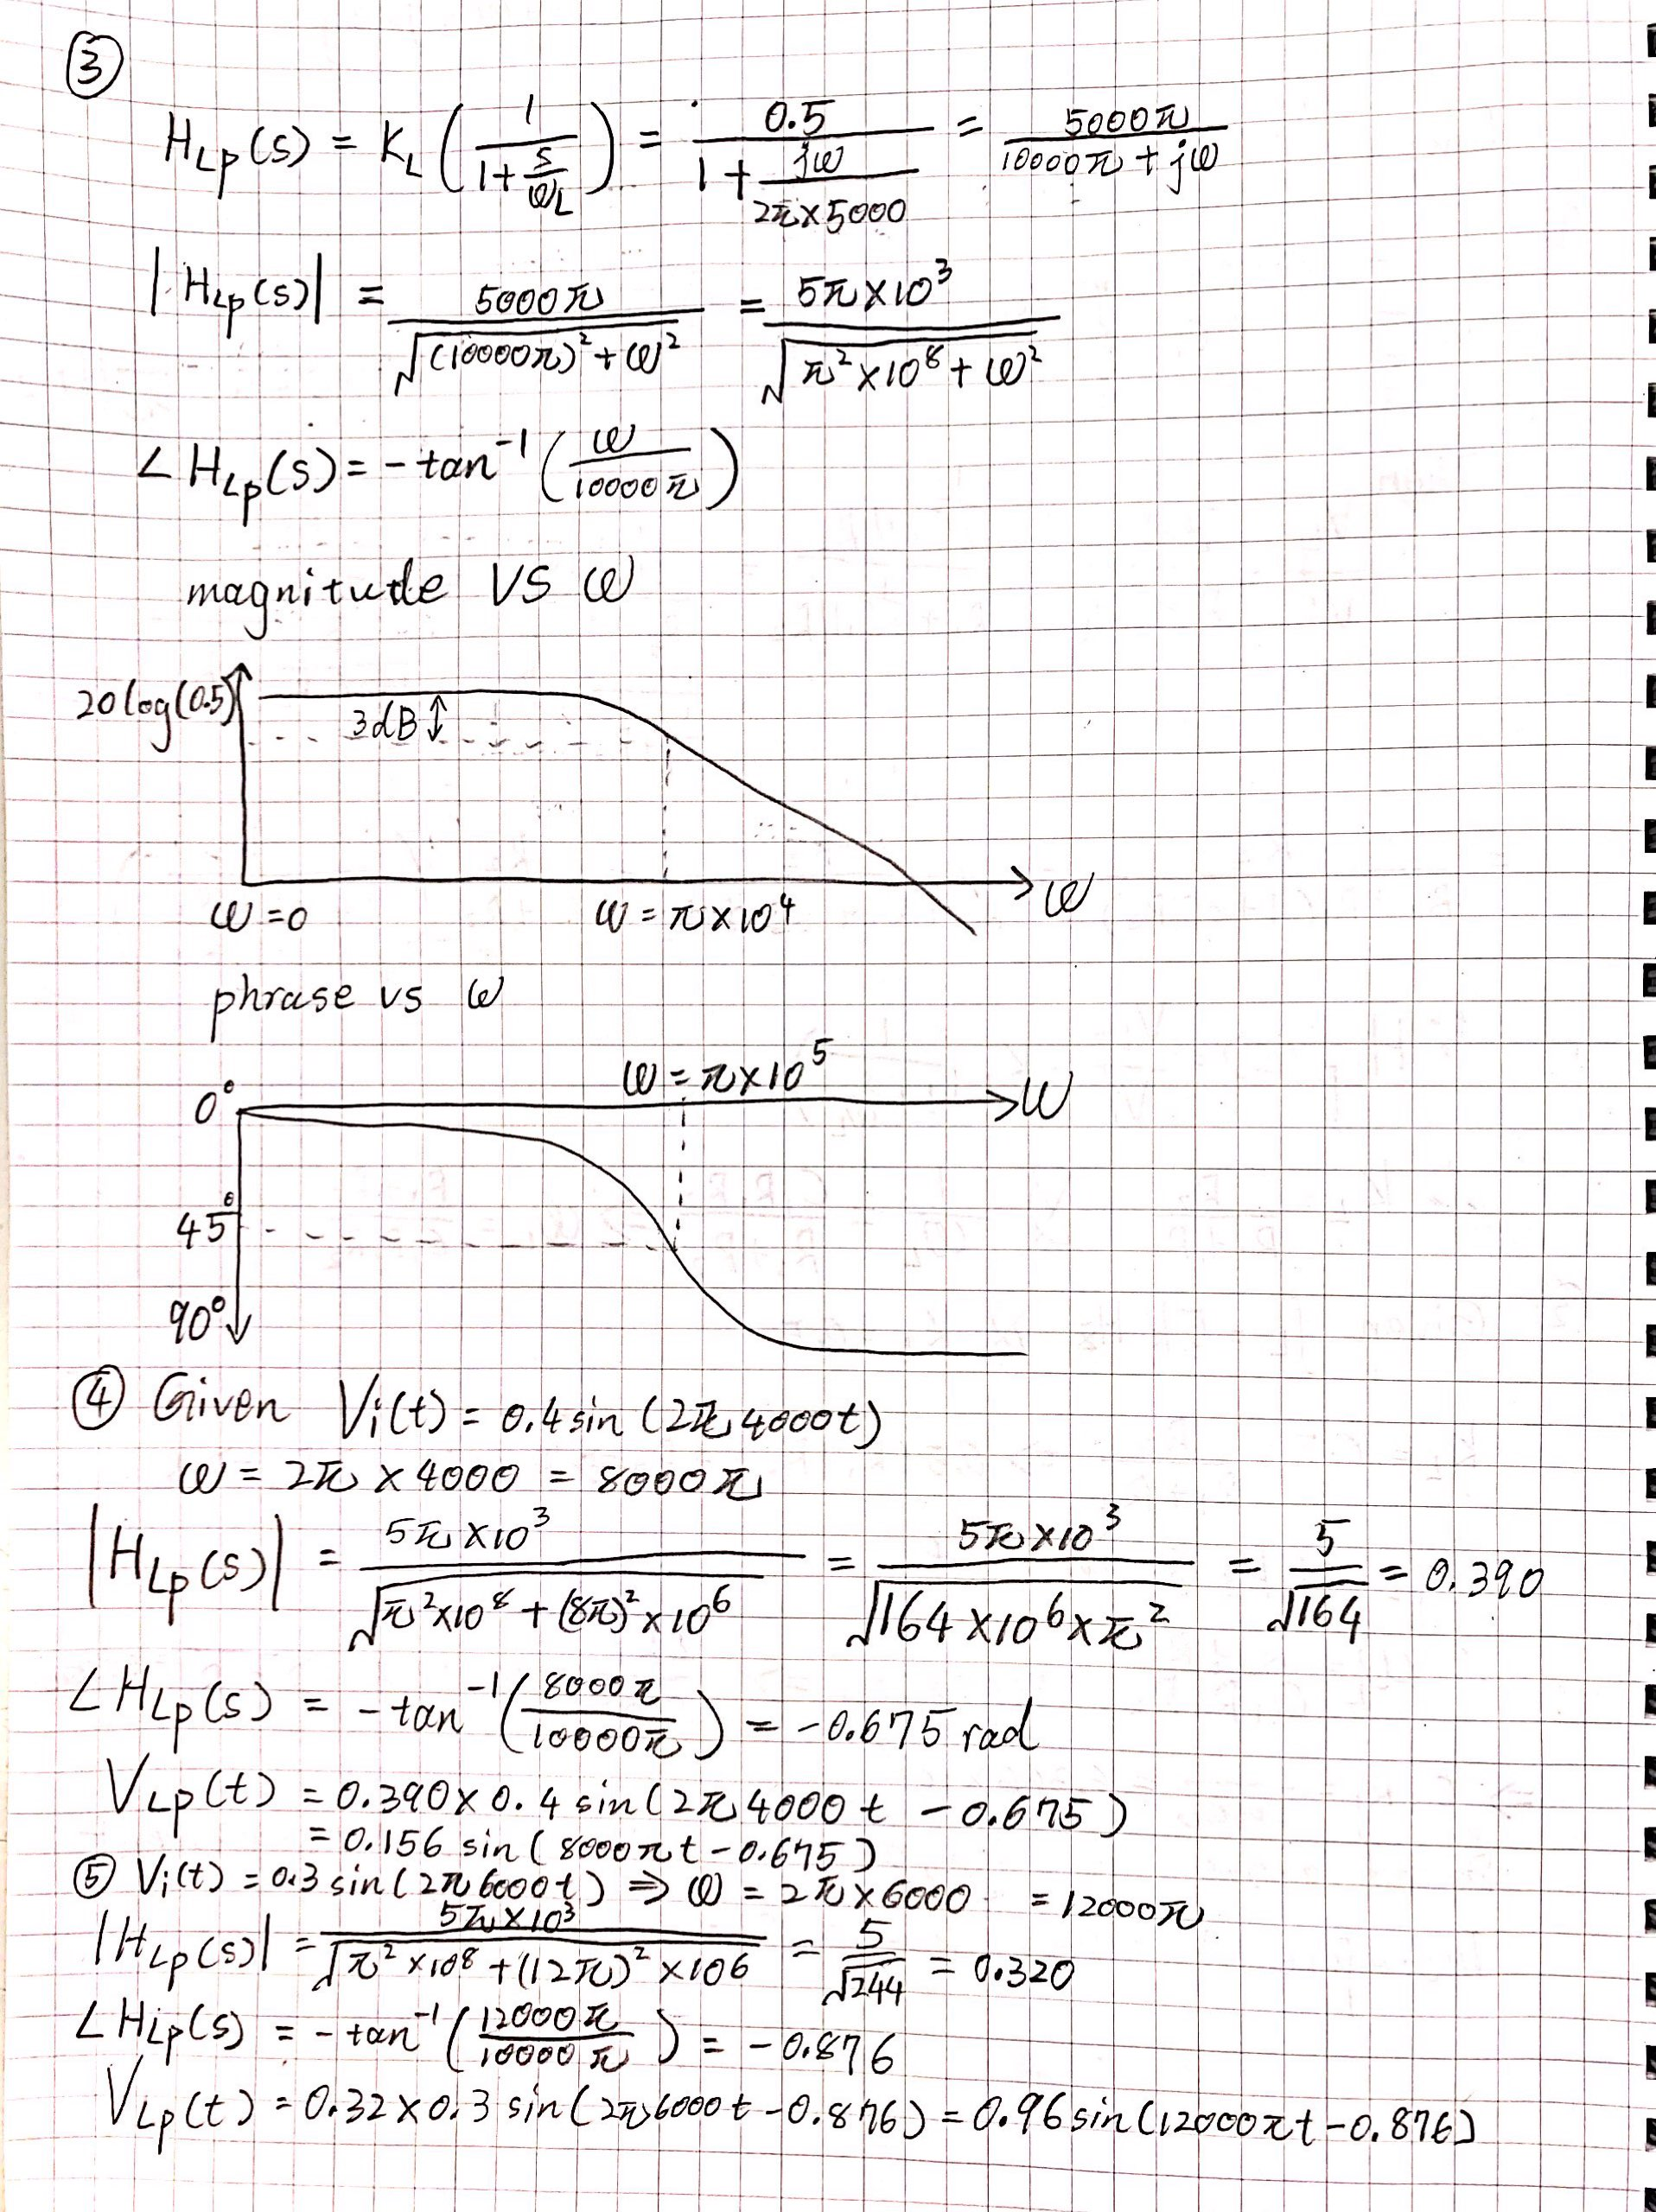 ③
H_Lp(s) = K_L (1 / (1 + s/ω_L)) = 0.5 / (1 + jω / (2π×5000)) = 5000π / (10000π + jω)
|H_Lp(s)| = 5000π / √((10000π)² + ω²) = 5π×10³ / √(π²×10⁸ + ω²)
∠H_Lp(s) = -tan⁻¹(ω / 10000π)
magnitude VS ω
20log(0.5)
3dB
ω
ω=0 ω=π×10⁴
phrase vs ω
ω=π×10⁵
0° ω
45°
90°
④ Given Vi(t) = 0.4sin(2π4000t)
ω = 2π × 4000 = 8000π
|H_Lp(s)| = 5π×10³ / √(π²×10⁸ + (8π)²×10⁶) = 5π×10³ / √(164×10⁶×π²) = 5/√164 = 0.390
∠H_Lp(s) = -tan⁻¹(8000π / 10000π) = -0.675 rad
V_Lp(t) = 0.390×0.4sin(2π4000t - 0.675)
= 0.156 sin(8000πt - 0.675)
⑤ Vi(t) = 0.3sin(2π6000t) ⇒ ω = 2π×6000 = 12000π
|H_Lp(s)| = 5π×10³ / √(π²×10⁸ + (12π)²×10⁶) = 5/√244 = 0.320
∠H_Lp(s) = -tan⁻¹(12000π / 10000π) = -0.876
V_Lp(t) = 0.32×0.3 sin(2π6000t - 0.876) = 0.96sin(12000πt - 0.876)